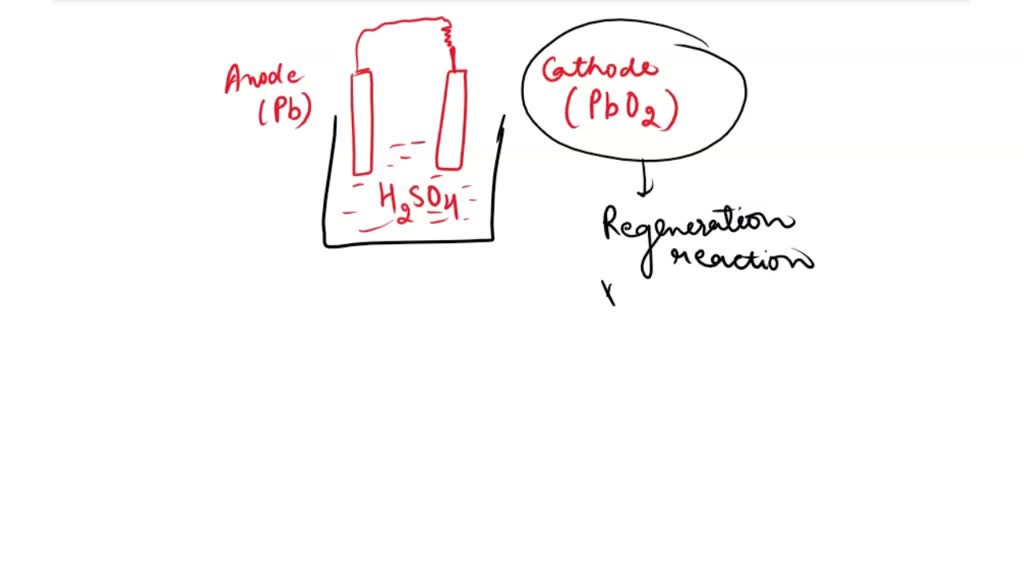 Anode
(Pb)
H2SO4
Cathode
(PbO2)
Regeneration
reaction